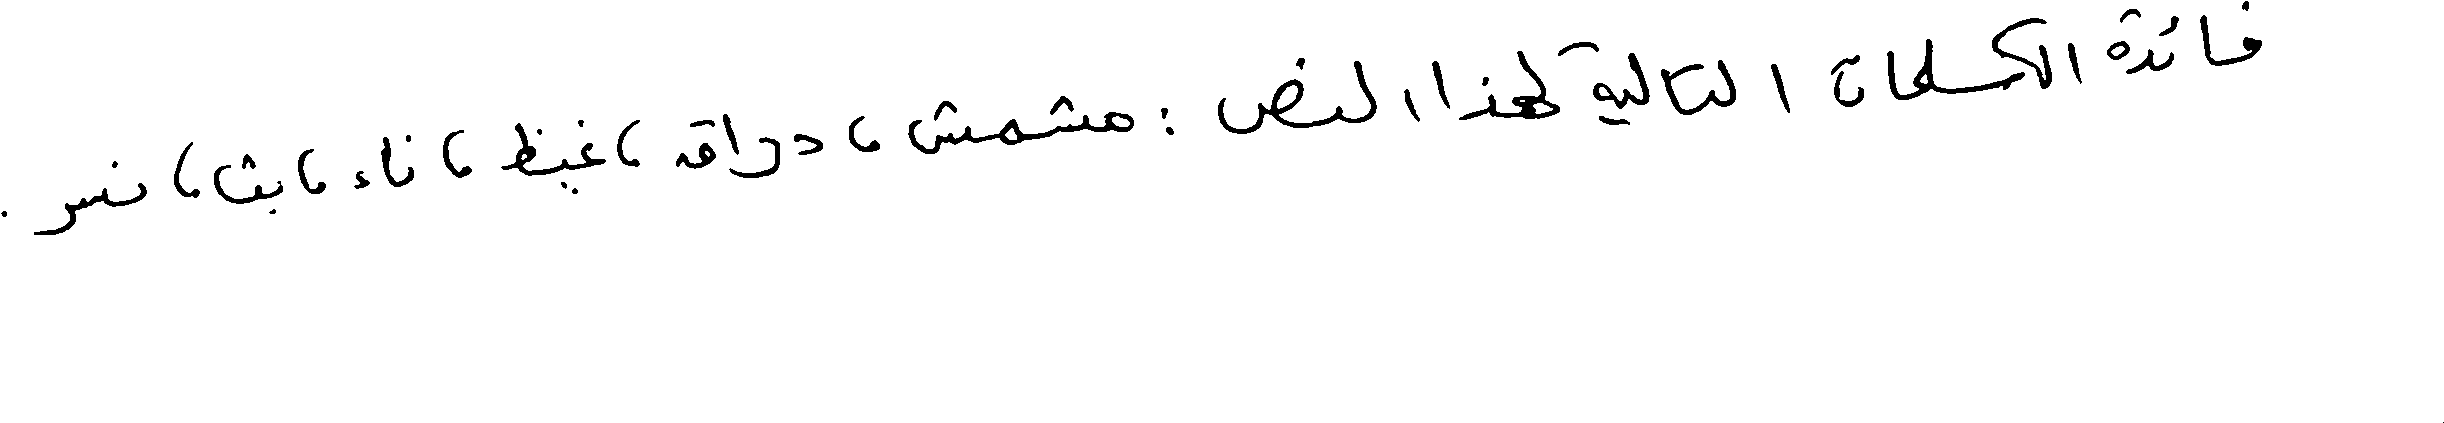 فائدة الكلمات التالية لهذا النص : مشمش ، دراقه ، غيظ ، ناء ، بث ، نسر .